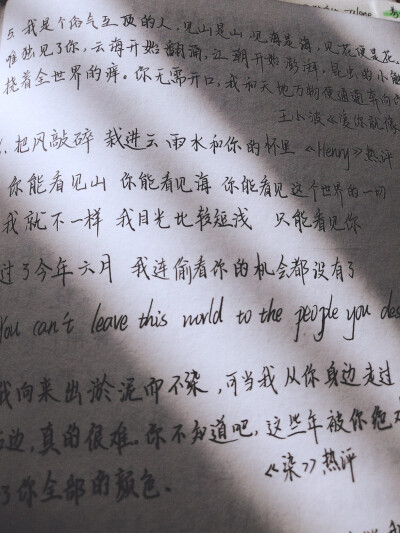 5. 我是个俗气至顶的人,见山是山,见海是海,见花便是花。
唯独见了你,云海开始翻涌,江潮开始澎湃,昆虫的小触
挠着全世界的痒。你无需开口,我和天地万物便通通奔向你
王小波《爱你就像
把风敲碎 栽进云 雨水和你的杯里 《Henry》热评
你能看见山 你能看见海 你能看见这个世界的一切
我就不一样 我目光比较短浅 只能看见你
过了今年六月 我连偷看你的机会都没有了
You can't leave this world to the people you des
我向来出淤泥而不染,可当我从你身边走过
边,真的很难。你不知道吧,这些年被你
了你全部的颜色。
《染》热评